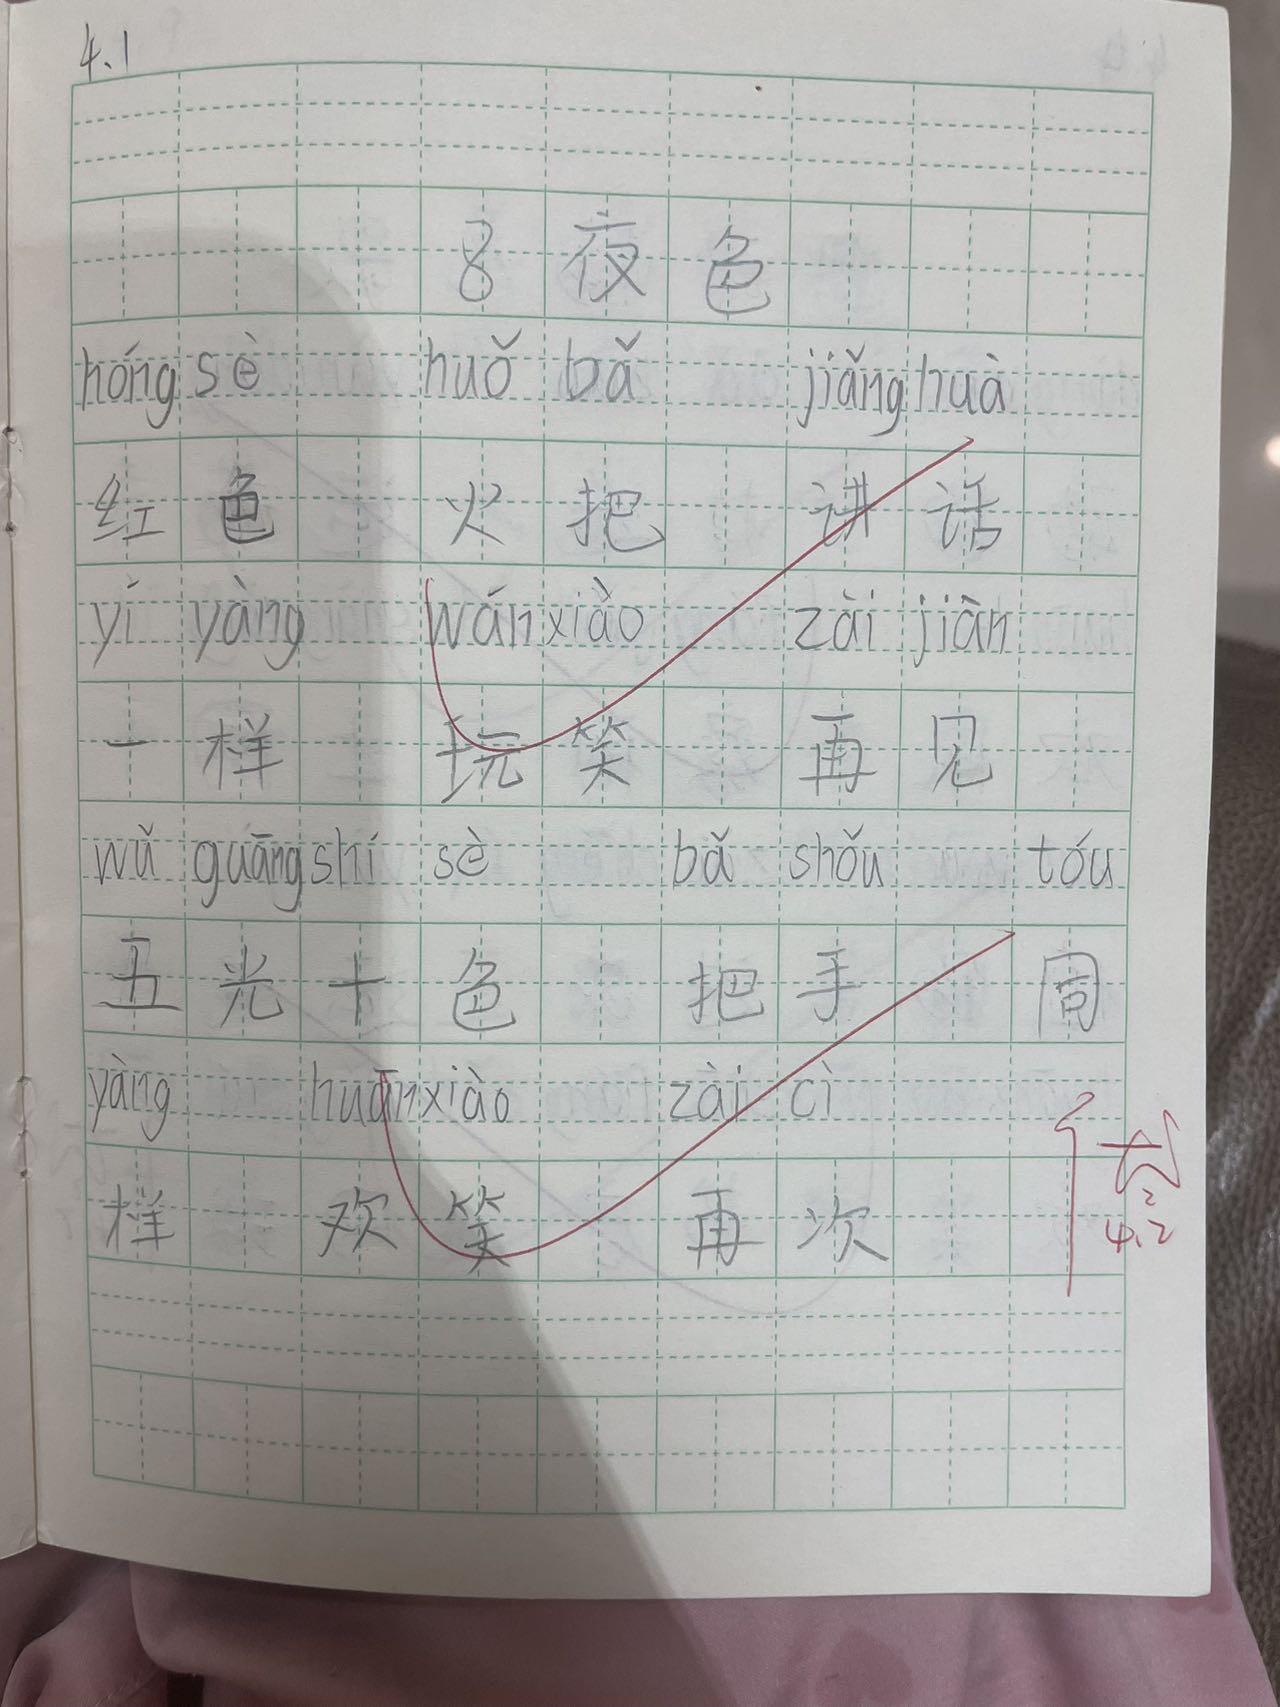 4.1
8 夜色
hóng sè huǒ bǎ jiǎng huà
红色 火把 讲话
yí yàng wán xiào zài jiàn
一样 玩笑 再见
wǔ guāng shí sè bǎ shǒu tóu
五光十色 把手
yàng huān xiào zài cì
样 欢笑 再次
4.2